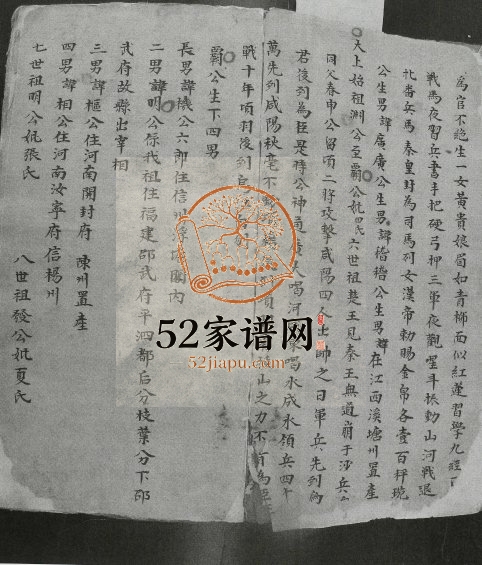 為官不絕生一女黃貴娘眉如青柳面似紅蓮習學九經
戰馬夜習兵書手把硬弓押三軍夜觀星斗振動山河戰退
北番兵馬秦皇封為司馬列女漢帝勅賜金帛各壹百秤
公生男諱廣廣公生男諱稽稽公生男諱在江西溪塘州置產
大上始祖渊公至霸公妣氏六世祖楚王見秦王無道崩于沙兵
同父春申公留項二將攻擊咸陽四人出師之日軍兵先到
君後到為臣是時公神通大喝河水喝水成氷領兵四十
萬先到咸陽秋毫不山之力不肯為臣
戰十年項封後到烏
霸公生下四男
長男諱機公六郎住信州內
二男諱明公係我祖住福建邵武府平泗都后分枝葉分下邵
武府故縣出宰相
三男諱樞公住河南開封府陳州置產
四男諱相公住河南汝寧府信楊州
七世祖明公妣張氏
八世祖發公妣夏氏
52家谱网
52jiapu.com